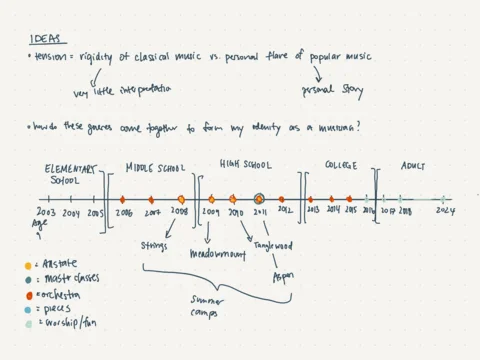 IDEAS
• tension = rigidity of classical music vs. personal flare of popular music
very little interpretation
personal story
• how do these genres come together to form my identity as a musician?
ELEMENTARY SCHOOL
MIDDLE SCHOOL
HIGH SCHOOL
COLLEGE
ADULT
2003 2004 2005 2006 2007 2008 2009 2010 2011 2012 2013 2014 2015 2016 2017 2018 2024
Age
9
Strings
Meadowmount
Tanglewood
Aspen
Summer
camps
= Allstate
= master classes
= orchestra
= pieces
= worship/fun